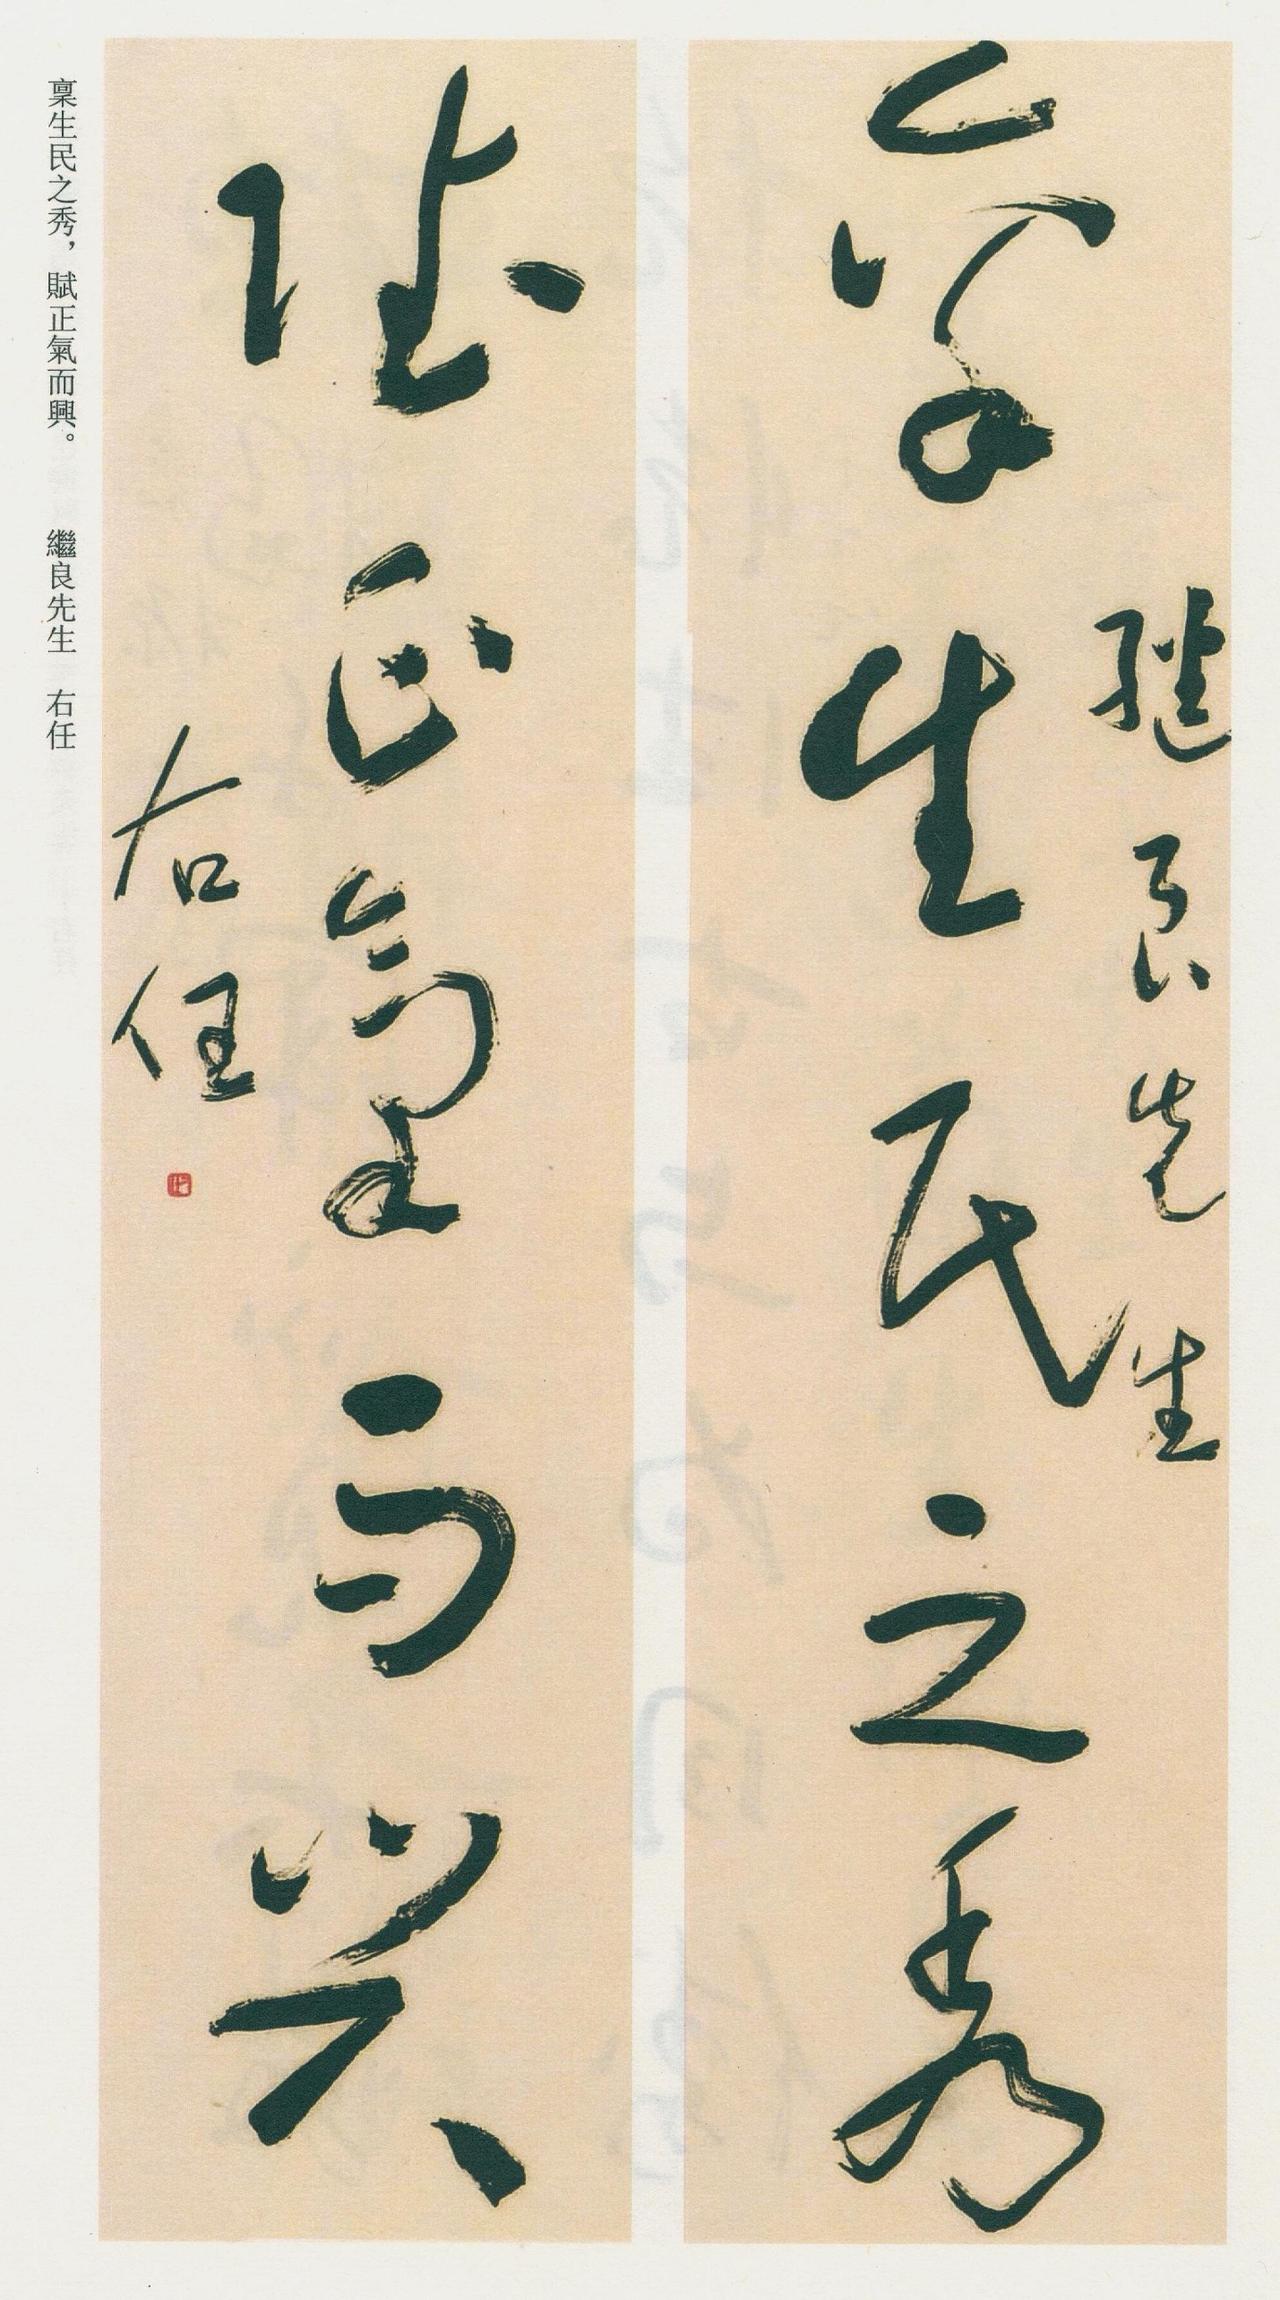 繼良先生
稟生民之秀
賦正氣而興
右任
稟生民之秀，賦正氣而興。　繼良先生　右任